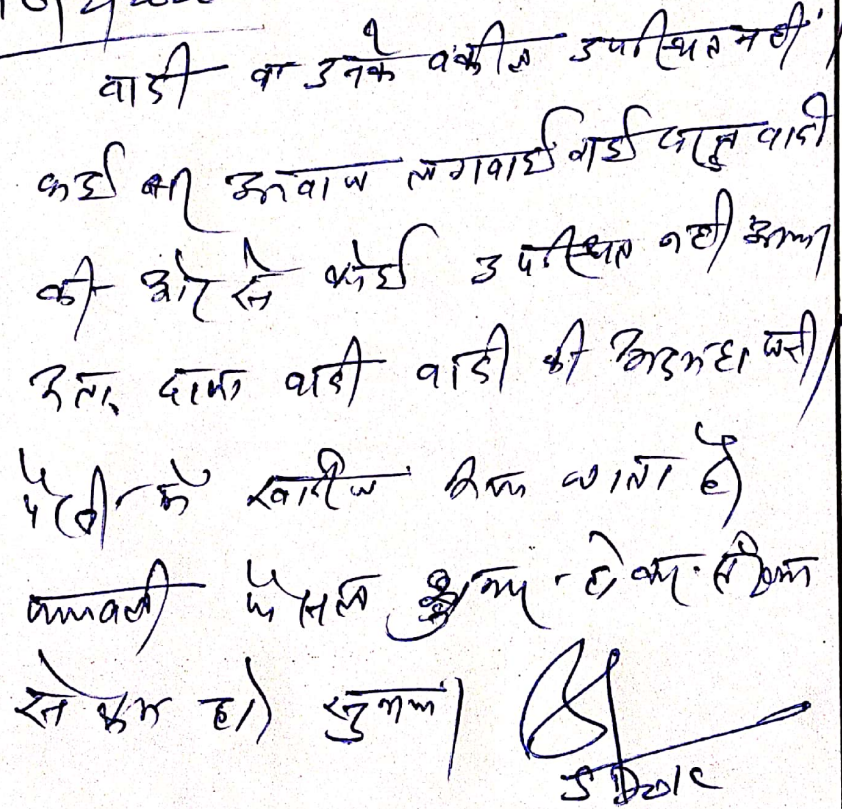 वादी व उनके वकील उपस्थित नहीं।
कई बार आवाज लगवाई गई परन्तु वादी
की ओर से कोई उपस्थित नहीं आया
अतः दावा वादी वादी की अदम हाजरी
पैरवी में खारीज किया जाता है।
पत्रावली फैसल शुमार होकर
से कम हो। सुनाया।